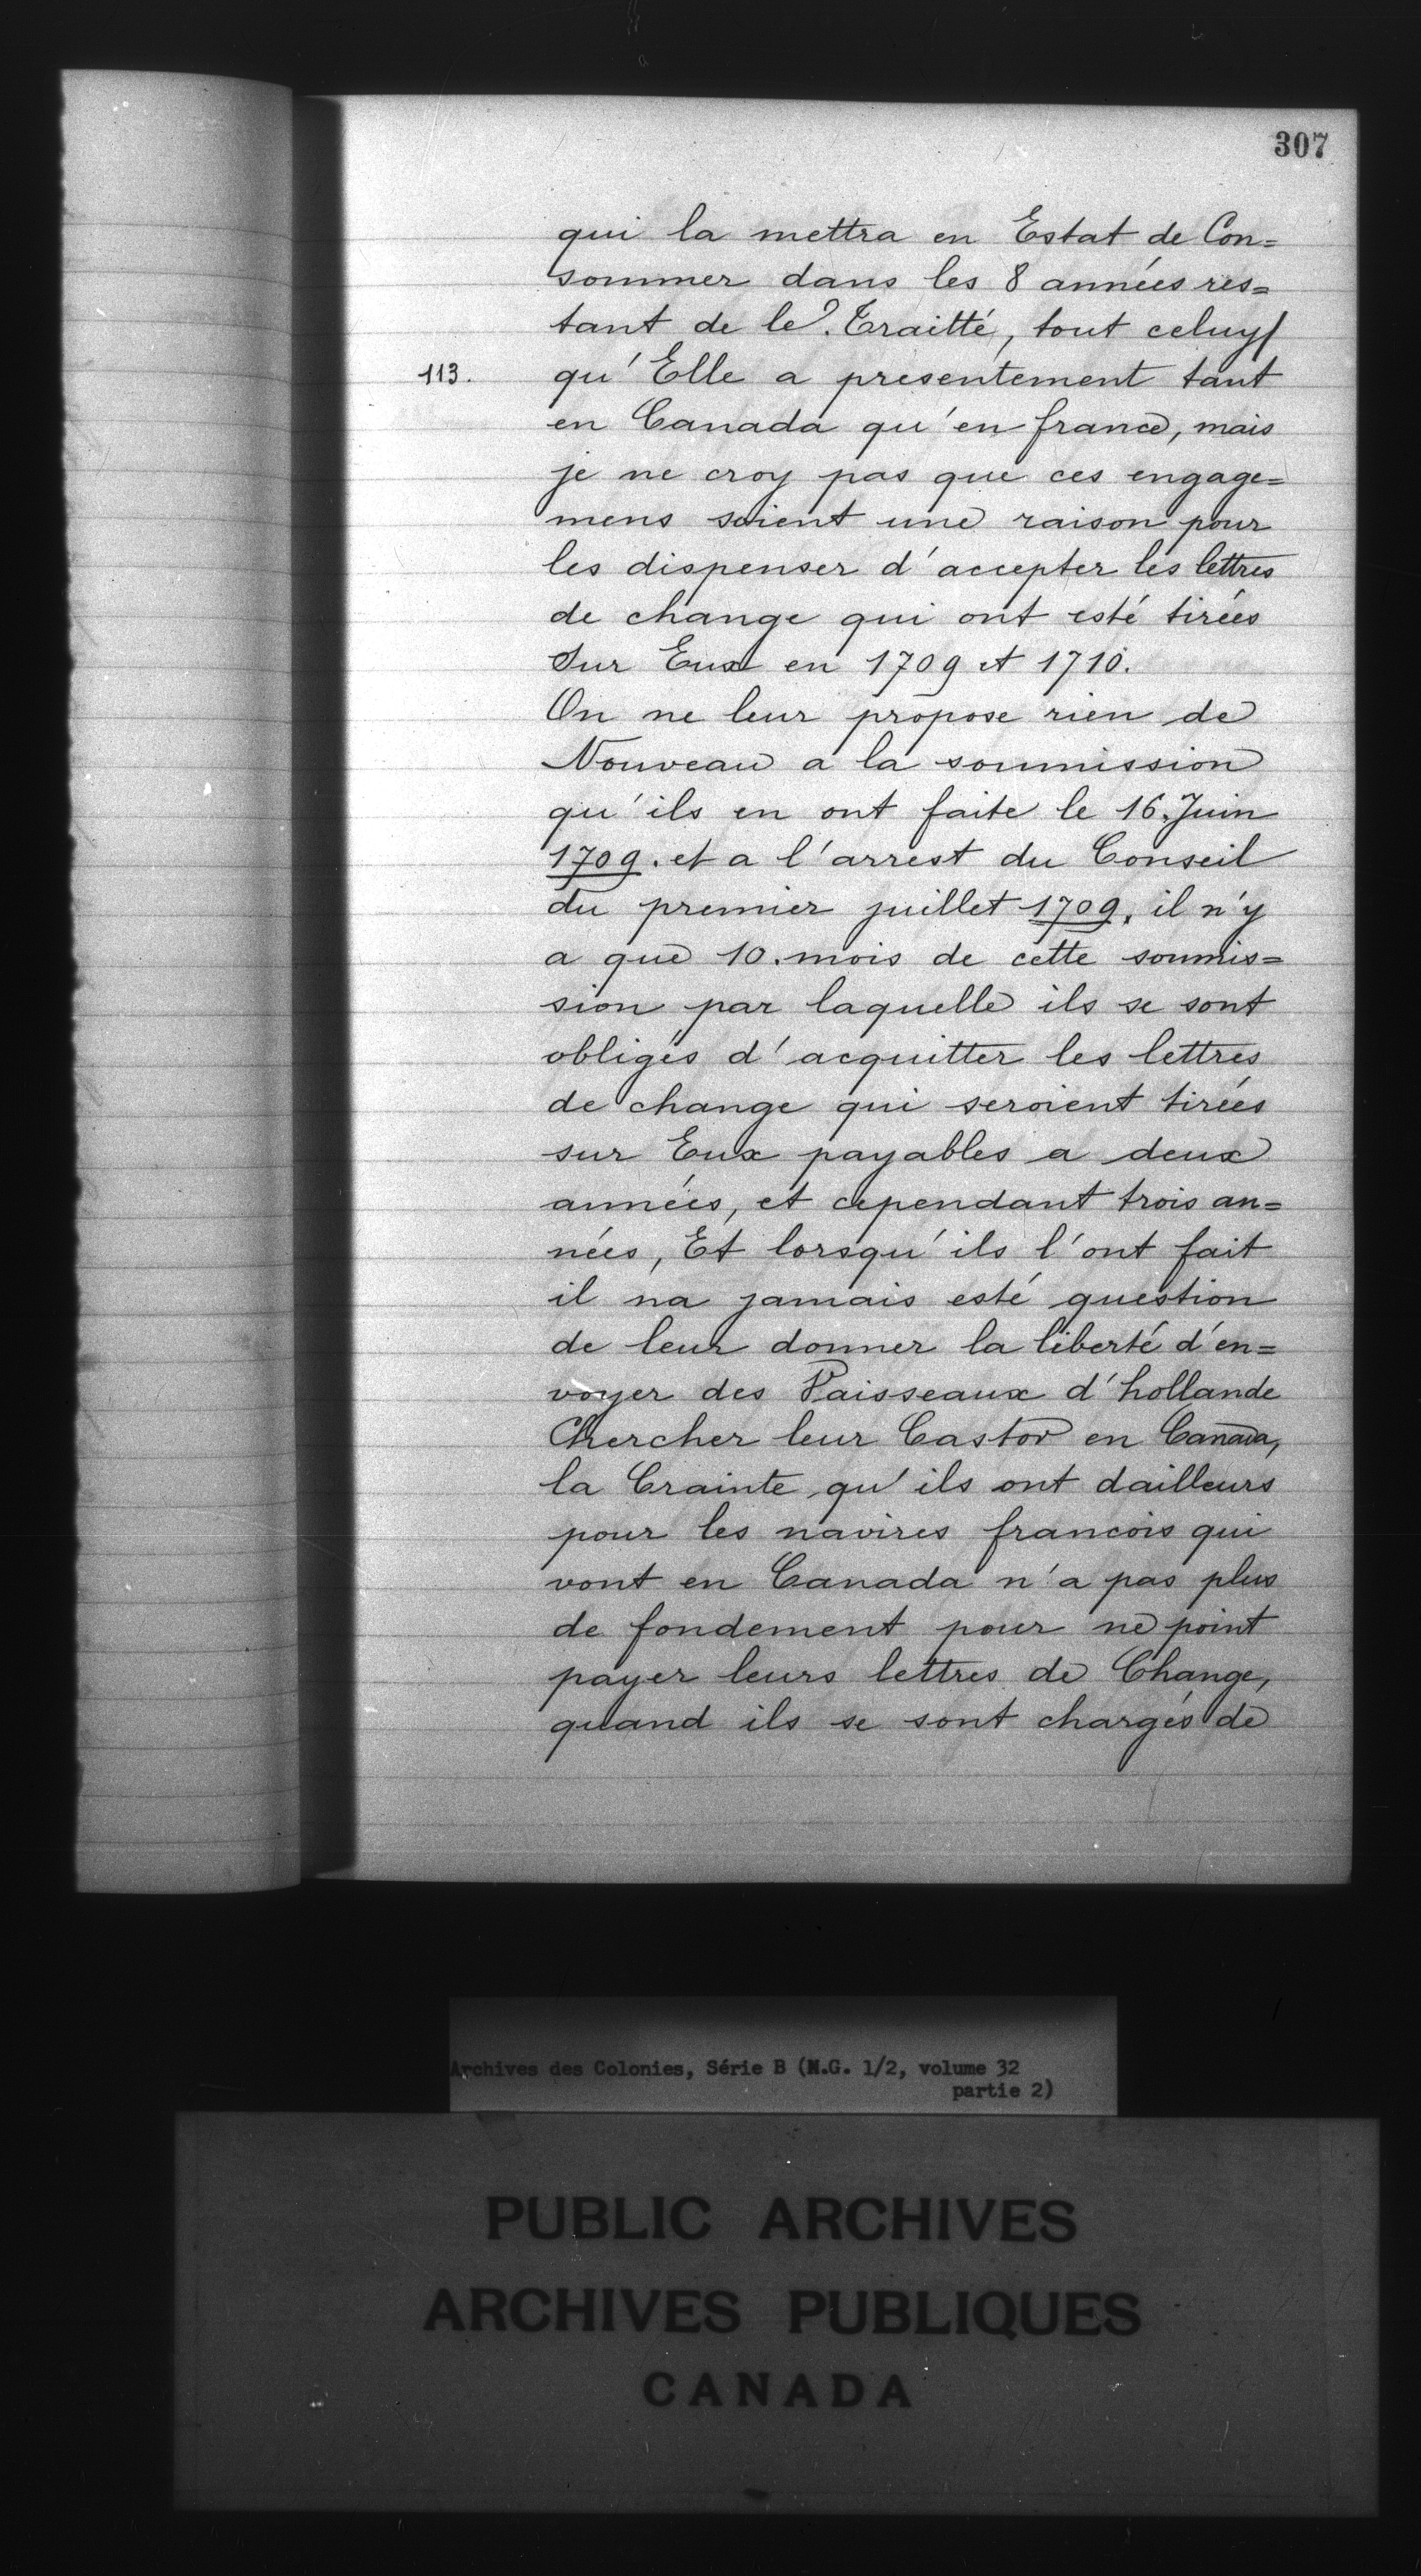 307
qui la mettra en Estat de Con=
sommer dans les 8 années res=
tant de led. Traitté, tout celuy
113. qu'Elle a presentement tant
en Canada qu'en france, mais
je ne croy pas que ces engage=
mens soient une raison pour
les dispenser d'accepter les lettres
de change qui ont esté tirées
sur Eux en 1709 et 1710.
On ne leur propose rien de
Nouveau a la soumission
qu'ils en ont faite le 16. Juin
1709. et a l'arrest du Conseil
du premier juillet 1709. il n'y
a que 10. mois de cette soumis=
sion par laquelle ils se sont
obligés d'acquitter les lettres
de change qui seroient tirées
sur Eux payables a deux
années, et cependant trois an=
nées, Et lorsqu'ils l'ont fait
il na jamais esté question
de leur donner la liberté d'en=
voyer des Vaisseaux d'hollande
Chercher leur Castor en Canada,
la Crainte qu'ils ont dailleurs
pour les navires francois qui
vont en Canada n'a pas plus
de fondement pour ne point
payer leurs lettres de Change,
quand ils se sont chargés de
Archives des Colonies, Série B (M.G. 1/2, volume 32
partie 2)
PUBLIC ARCHIVES
ARCHIVES PUBLIQUES
CANADA